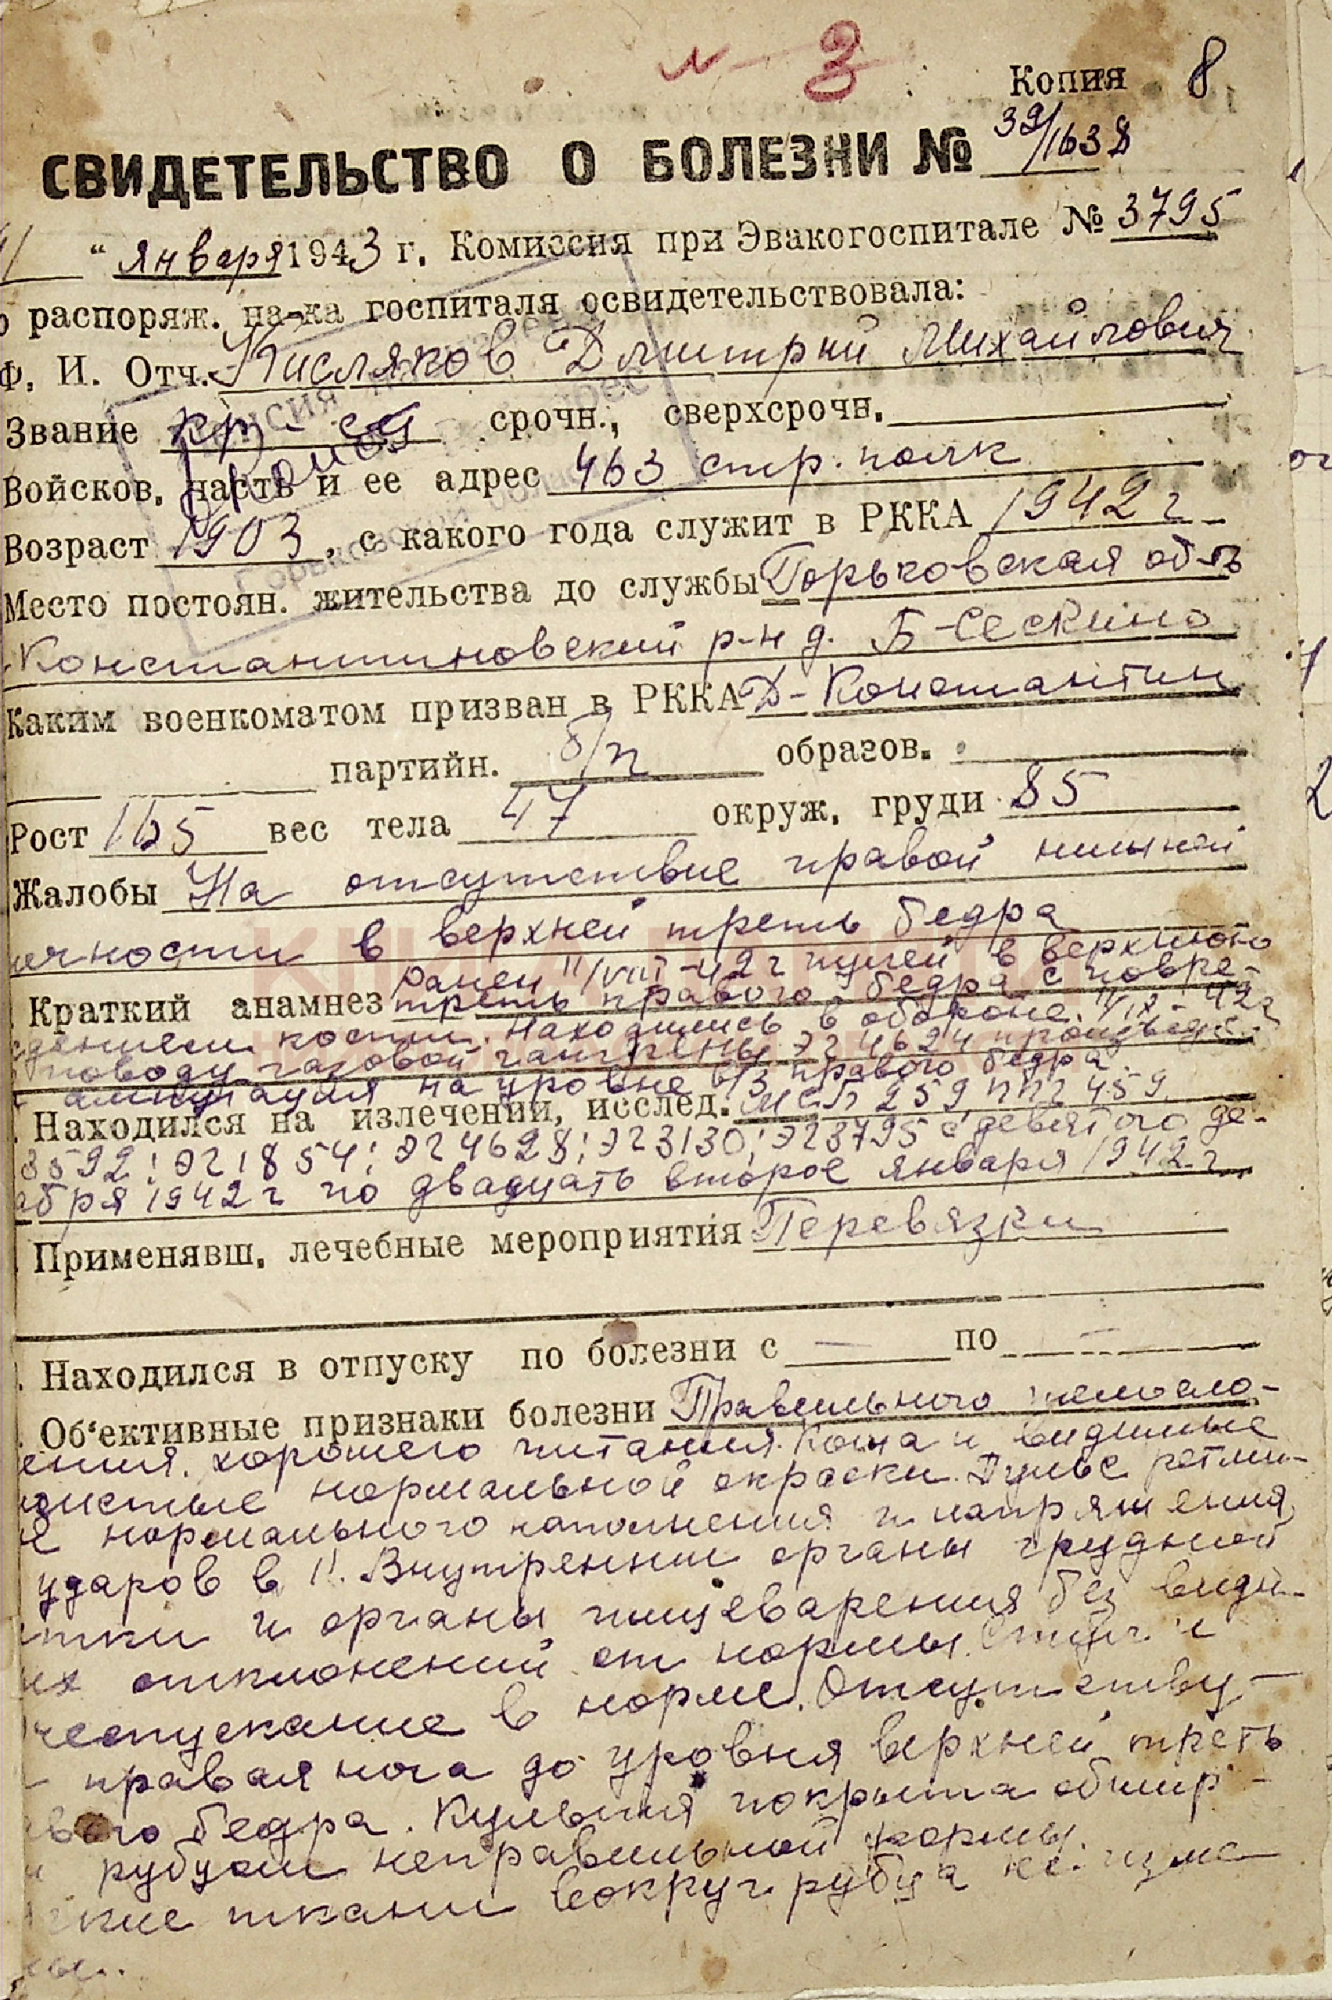 № 3
Копия 8
СВИДЕТЕЛЬСТВО О БОЛЕЗНИ № 39/1638
" января 1943 г. Комиссия при Эвакогоспитале № 3795
распоряж. на-ка госпиталя освидетельствовала:
Ф. И. Отч. Кисляков Дмитрий Михайлович
Звание кр-ец срочн., сверхсрочн.
Войсков. часть и ее адрес 463 стр. полк
Возраст 1903, с какого года служит в РККА 1942 г
Место постоян. жительства до службы Горьковская об-ть
Константиновский р-н д. Б-Сескино
Каким военкоматом призван в РККА Д-Константин
партийн. б/п образов.
Рост 165 вес тела 47 окруж. груди 85
Жалобы На отсутствие правой нижней
ечности в верхней треть бедра
Краткий анамнез Ранен 11/VIII-42 г пулей в верхнюю
треть правого бедра с повре-
дением кости. Находились в обороне. 11/IX-42 г
поводу газовой гангрены ЭГ 4624 произведе
ампутация на уровне в/3 правого бедра.
Находился на излечении, исслед. МСБ 259 ППГ 459
3592; ЭГ 1854; ЭГ 4628; ЭГ 3130; ЭГ 3795 с девятого де-
абря 1942 г по двадцать второе января 1942 г
Применявш. лечебные мероприятия Перевязки
Находился в отпуску по болезни с — по —
Об'ективные признаки болезни Правильного телосло-
ения. хорошего питания. Кожа и видимые
изистые нормальной окраски. Пульс ретми-
й нормального наполнения и напряжения,
ударов в 1'. Внутренние органы грудной
етки и органы пищеварения без види-
ых отклонений от нормы. Стул и
чеиспускание в норме. Отсутству-
правая нога до уровня верхней треть
авого бедра. Культя покрыта обшир-
рубцом неправильной формы.
гкие ткани вокруг рубца не изме
ны.